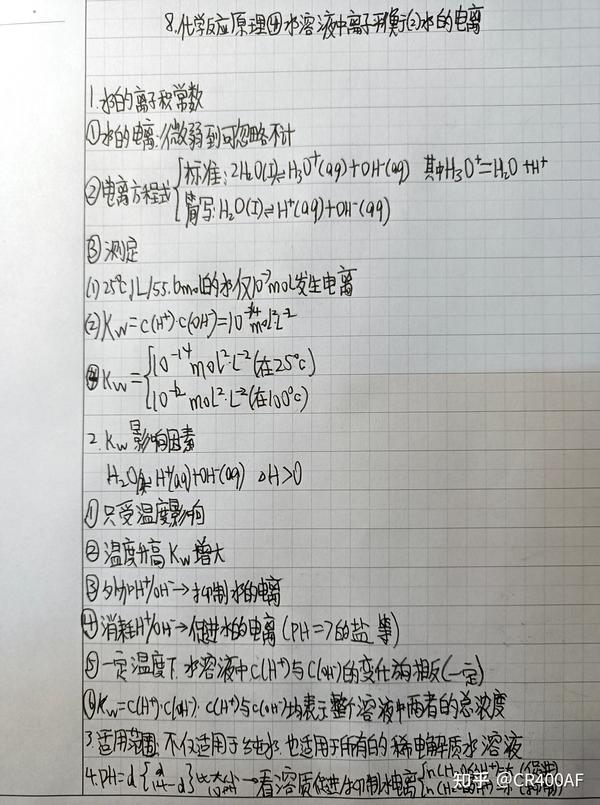 8.化学反应原理④水溶液中离子平衡(2)水的电离
1.水的离子积常数
①水的电离:微弱到可忽略不计
②电离方程式{标准:2H₂O(l)⇌H₃O⁺(aq)+OH⁻(aq) 其中H₃O⁺=H₂O+H⁺
简写:H₂O(l)⇌H⁺(aq)+OH⁻(aq)
③测定
(1)25℃,1L/55.6mol的水仅10⁻⁷mol发生电离
(2)Kw=c(H⁺)·c(OH⁻)=10⁻¹⁴mol²·L⁻²
④Kw={10⁻¹⁴mol²·L⁻²(在25℃)
10⁻¹²mol²·L⁻²(在100℃)
2.Kw影响因素
H₂O⇌H⁺(aq)+OH⁻(aq) ΔH>0
①只受温度影响
②温度升高Kw增大
③外加H⁺/OH⁻→抑制水的电离
④消耗H⁺/OH⁻→促进水的电离(PH=7的盐等)
⑤一定温度下,水溶液中c(H⁺)与c(OH⁻)的变化方向相反(一定)
⑥Kw=c(H⁺)·c(OH⁻):c(H⁺)与c(OH⁻)均表示整个溶液中两者的总浓度
3.适用范围:不仅适用于纯水,也适用于所有的稀电解质水溶液
4.PH=d{ →看溶质促进/抑制水电离
知乎 @CR400AF